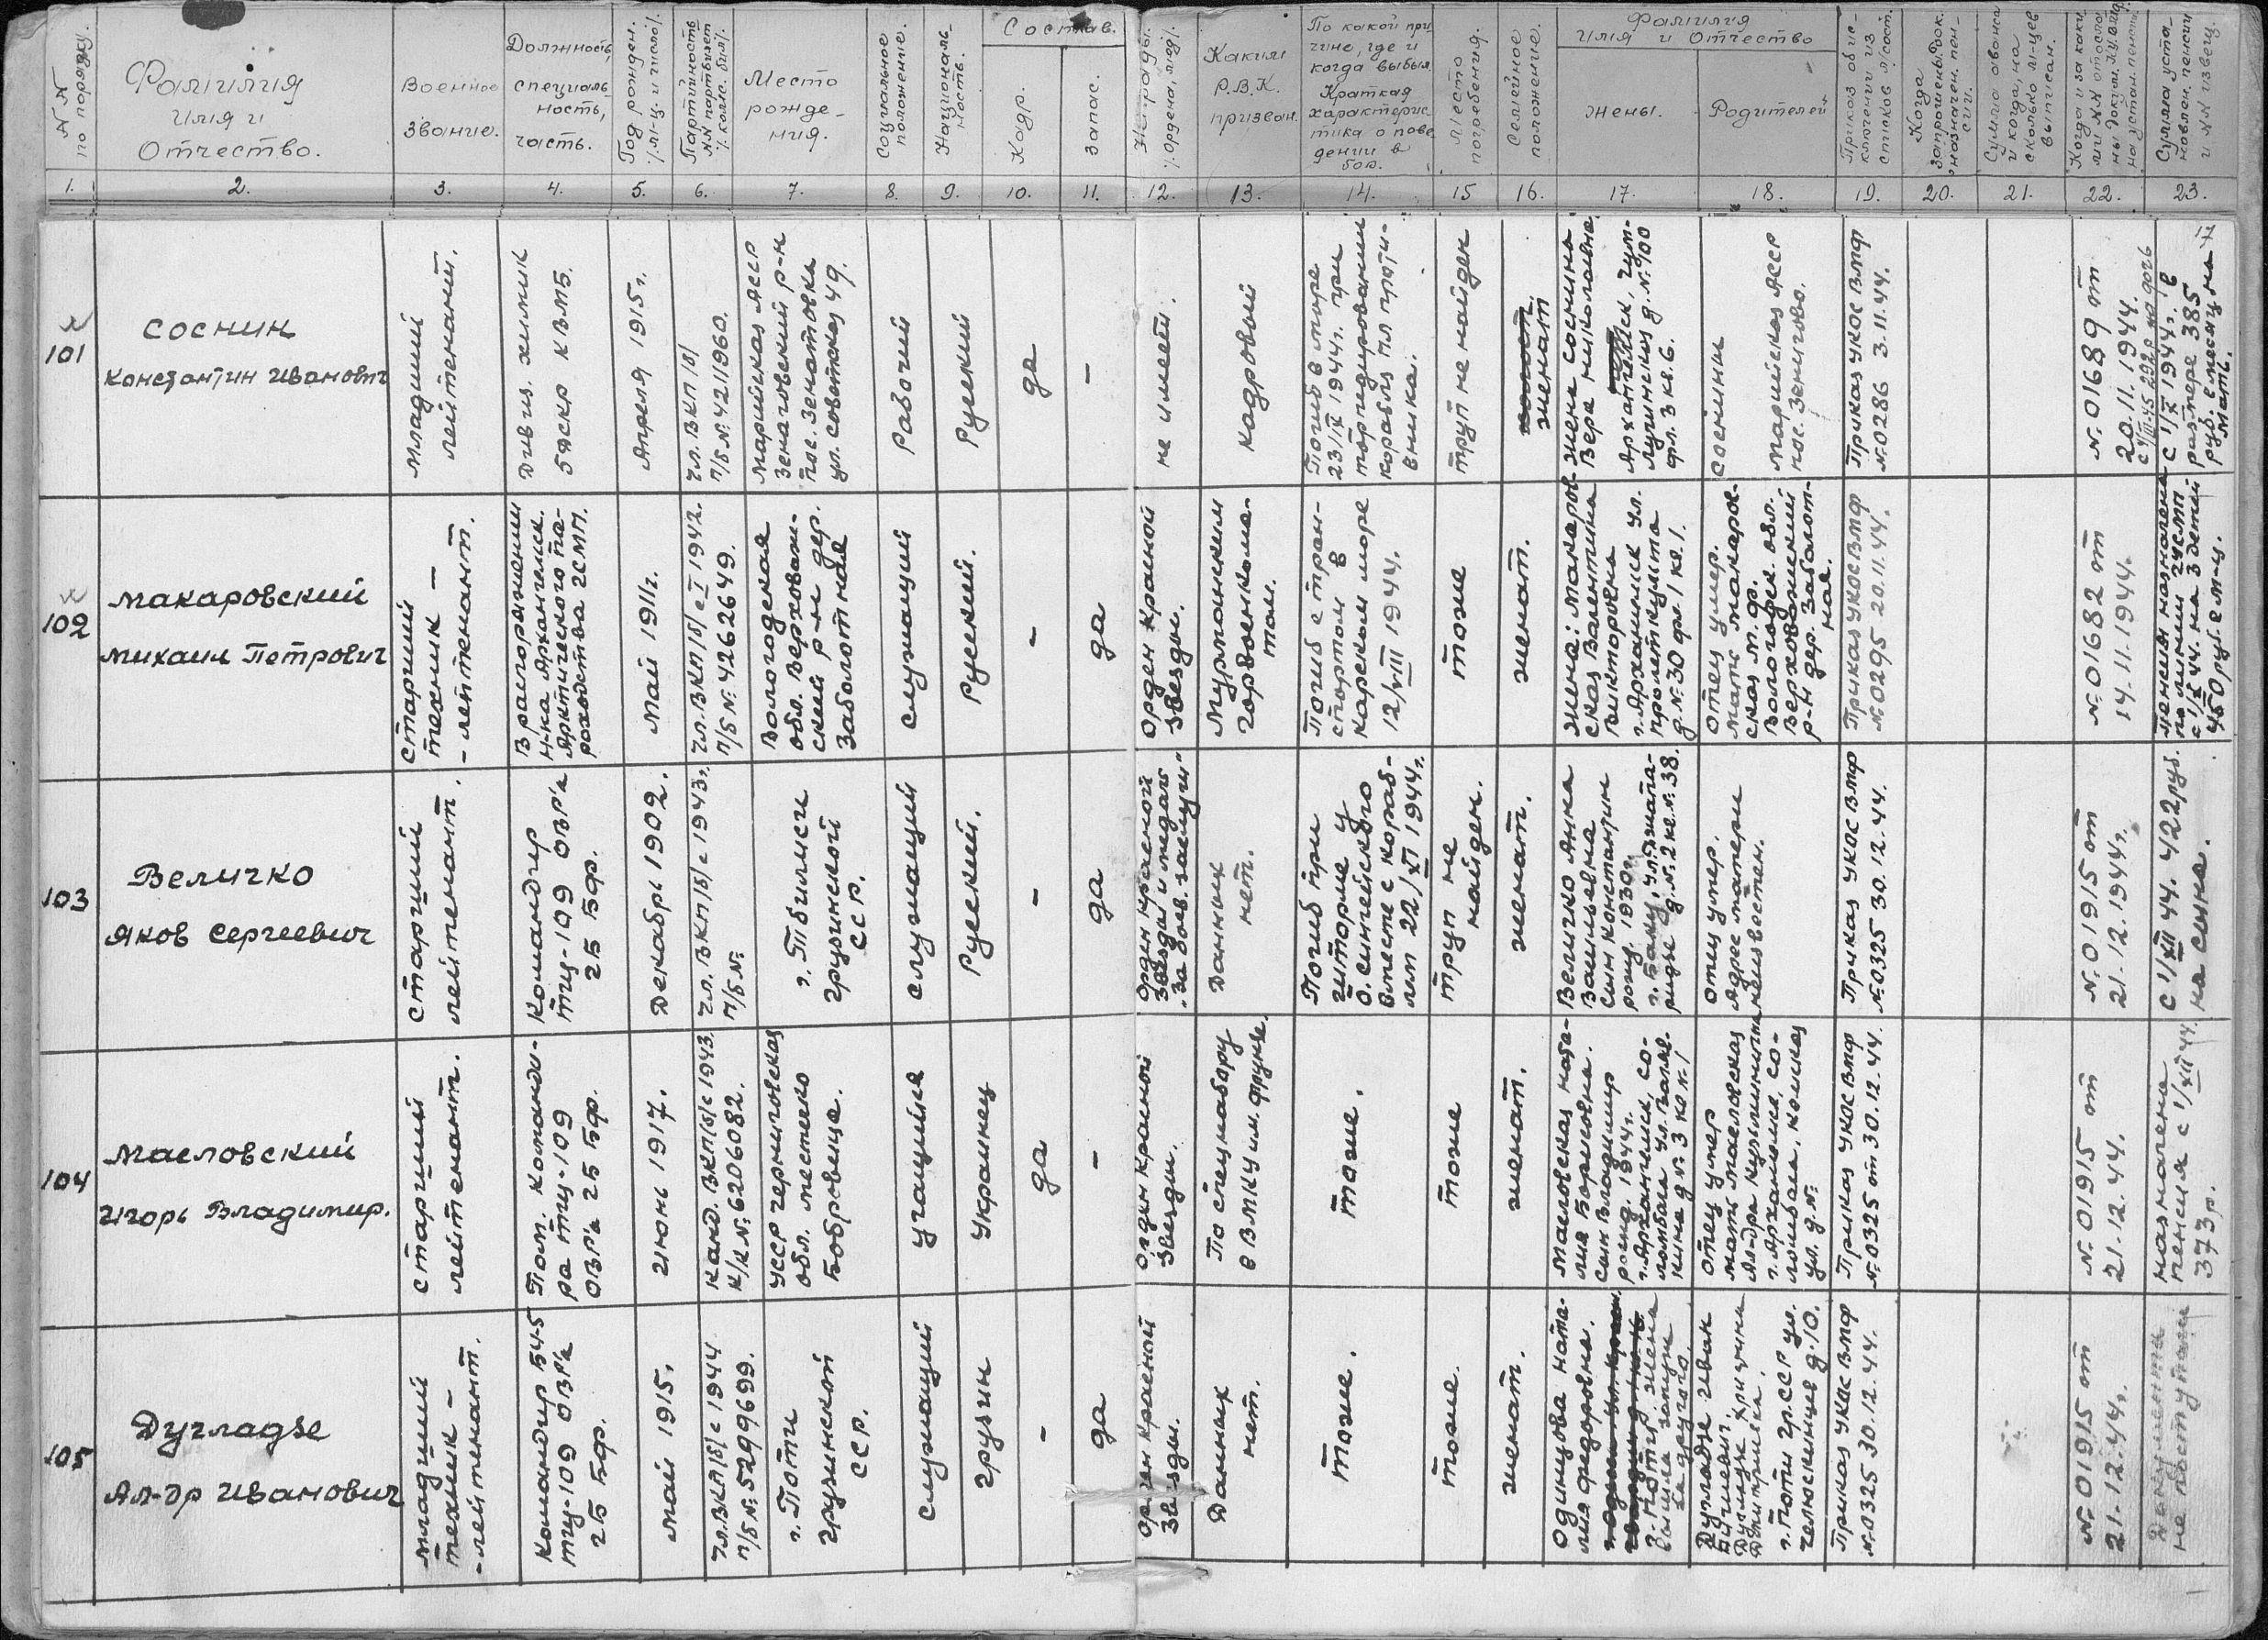 N N по порядку.
Фамилия
имя и
Отчество.
Военное
звание.
Должность,
специаль-
ность,
часть.
Год рожден.
/м-ц и число/.
Партийность
NN партбилет
/комс. бил/.
Место
рожде-
ния.
Социальное
положение.
Националь-
ность.
Состав.
Кадр.
запас.
Награды.
/ордена, мед/.
Каким
Р.В.К.
призван.
По какой при
чине, где и
когда выбыл.
Краткая
характерис
тика о пове
дении в
бою.
Место
погребения.
Семейное
положение.
Фамилия
имя и Отчество
жены.
Родителей
Приказ об ис-
ключении из
списков л/сост.
Когда
запрошены док.
назначен. пен-
сии.
Сумма аванса
и когда, на
сколько м-цев
выписан.
Когда и за каки
ми NN отосла
ны докум.
на устан. пенсии
Сумма уста-
новлен. пенсии
и NN извещ.
1. 2. 3. 4. 5. 6. 7. 8. 9. 10. 11. 12. 13. 14. 15 16. 17. 18. 19. 20. 21. 22. 23.
101
Соснин
Константин Иванович
Младший
лейтенант.
Дивиз. химик
БДСКР КВМБ.
Апреля 1915г.
Чл. ВКП/б/
п/б №4211960.
Марийская АССР
Звениговский р-н
пос. Звениговка
ул. Советская 49.
Рабочий
Русский
да
-
не имеет.
кадровый
Погиб в море
23/IX 1944г. при
торпедировании
корабля пл проти-
вника.
труп не найден
женат
жена Соснина
Вера Николаевна
Архангельск, Чум-
Лучинская д.№100
фл.3 кв.6.
Соснины
Марийская АССР
пос. Звенигово.
Приказ УКОС ВМФ
№0286 3.11.44.
№01689 от
20.11.1944.
с 1/X 1944г. в
размере 385
руб. в месяц на
мать.
102
Макаровский
Михаил Петрович
Старший
техник -
- лейтенант.
В распоряжении
н-ка Архангельск.
Арктического па-
роходства ГСМП.
май 1911г.
Чл. ВКП/б/ с I 1942.
п/б №4262649.
Вологодская
обл. Верховаж-
ский р-н дер.
Заболотная
служащий
Русский.
-
да
Орден Красной
Звезды.
Мурманским
Горвоенкома-
том.
Погиб с тран-
спортом в
Карском море
12/VIII 1944г.
тоже
женат.
жена: Макаров-
ская Валентина
Викторовна
г.Архангельск ул.
Пролеткульта
д.№30 фл.1 кв.1.
отец умер.
мать Макаров-
ская М.Ф.
Вологодск. обл.
Верховажский
р-н дер. Заболот-
ная.
Приказ УКОС ВМФ
№0295 20.11.44.
№01682 от
14.11.1944.
пенсия назначена
по линии ГУСМП
с 1/IX 44. на 3 детей
450 руб в м-ц.
103
Величко
Яков Сергеевич
Старший
лейтенант.
Командир
ТЩ-109 ОВР'а
2Б БФ.
Декабрь 1902.
Чл. ВКП/б/ с 1943г.
п/б №
г. Тбилиси
Грузинской
ССР.
служащий
Русский.
-
да
Орден Красной
Звезды и медаль
„за боев. заслуги"
Данных
нет.
Погиб при
шторме у
о. Сингейского
вместе с кораб-
лем 22/XI 1944г.
труп не
найден.
женат.
Величко Анна
Васильевна
сын Константин
рожд. 1930г.
г. Баку, ул. Джапа-
ридзе д.№2 кв.№38.
отец умер.
Адрес матери
неизвестен.
Приказ УКОС ВМФ
№0325 30.12.44.
№01915 от
21.12.1944г.
с 1/XII 44. 422 руб.
на сына.
104
Масловский
Игорь Владимир.
Старший
лейтенант.
Пом. командир-
ра ТЩ-109
ОВР'а 2Б БФ.
июнь 1917.
Канд. ВКП/б/ с 1943.
К/К №6206082.
УССР Черниговская
обл. местечко
Бобровице.
учащийся
Украинец
да
-
Орден Красной
Звезды.
По спецнабору
в ВМКУ им. Фрунзе.
тоже.
тоже
женат.
Масловская Ната-
лия Борисовна.
сын Владимир
рожд. 1944г.
г.Архангельск, Со-
ломбала ул.
д № 3 кв №1
отец умер
мать Масловская
Ал-дра
г. Архангельск, Со-
ломбала,
ул. д. №
Приказ УКОС ВМФ
№0325 от 30.12.44.
№01915 от
21.12.44.
назначена
пенсия с 1/XII 44
373 р.
105
Дугладзе
Ал-др Иванович
Младший
техник -
- лейтенант.
Командир БЧ-5
ТЩ-109 ОВР'а
2Б БФ.
май 1915.
Чл. ВКП/б/ с 1944
п/б №5299699.
г. Поти
Грузинской
ССР.
Служащий
Грузин
-
да
Орден Красной
Звезды.
Данных
нет.
тоже.
тоже.
женат.
Одинцова Ната-
лия Федоровна.
г. Поти, жена
вышла замуж
за другого.
Дугладзе Иван
Дугладзе Христина
Дмитриевна.
г. Поти Гр.ССР ул.
Челюскинцев д.10.
Приказ УКОС ВМФ
№0325 30.12.44.
№01915 от
21.12.44г.
Документы
не поступали